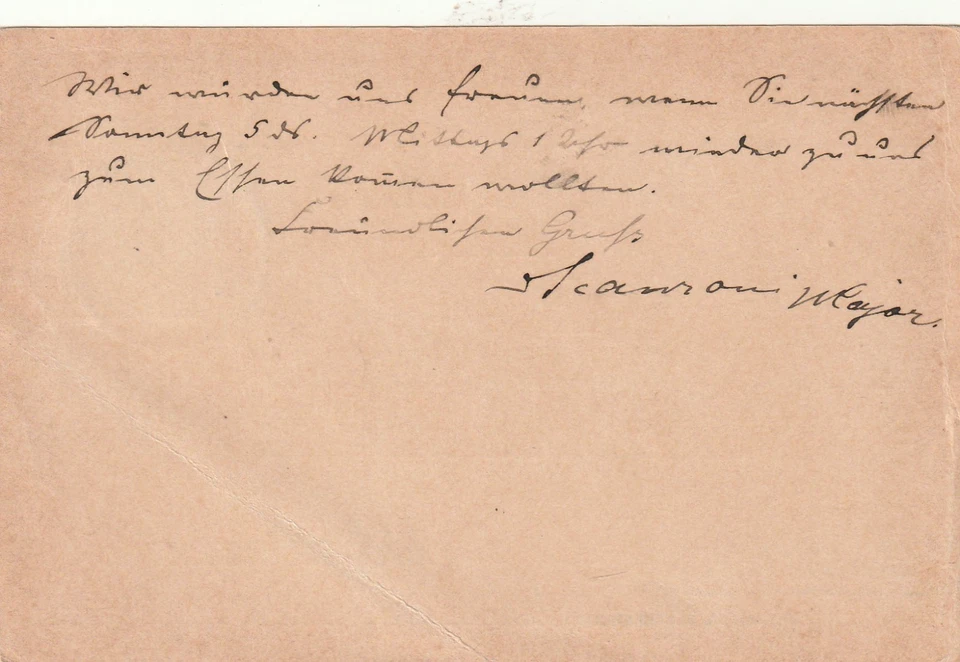 Wir würden uns freuen, wenn Sie nächsten
Sonntag 5 ds. Mittags 1 Uhr wieder zu uns
zum Essen kom̅en wollten.
Freundlichen Gruß
Scanzoni Major.